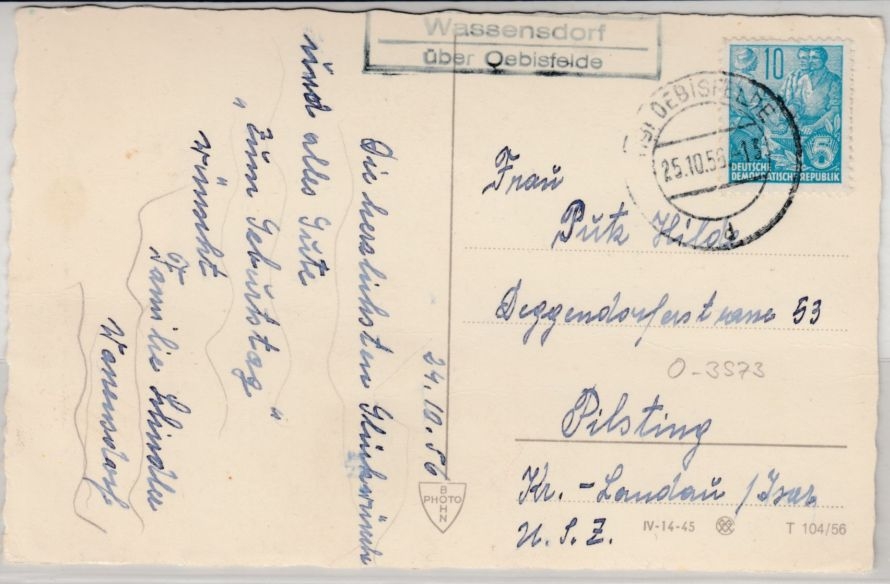 Wassensdorf
über Oebisfelde
10
OEBISFELDE
25.10.56
DEUTSCHE
DEMOKRATISCHE REPUBLIK
5
24.10.56
Die herzlichsten Glückwünsche
und alles Gute
"Zum Geburtstag"
wünscht
Familie Schindler
Frau
Putz Hilde
Deggendorferstrasse 53
O-3573
Pilsting
Kr. - Landau / Isar
U.S.Z.
BOHN
PHOTO
IV-14-45
T 104/56